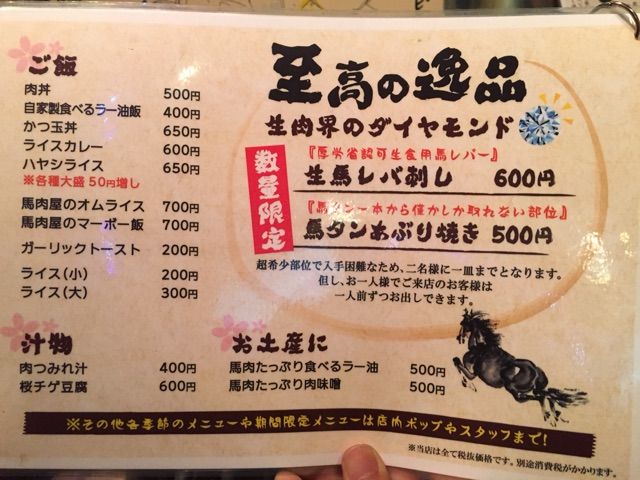 ご飯
肉丼 500円
自家製食べるラー油飯 400円
かつ玉丼 650円
ライスカレー 600円
ハヤシライス 650円
※各種大盛50円増し
馬肉屋のオムライス 700円
馬肉屋のマーボー飯 700円
ガーリックトースト 200円
ライス(小) 200円
ライス(大) 300円
汁物
肉つみれ汁 400円
桜チゲ豆腐 600円
至高の逸品
生肉界のダイヤモンド
数量限定
『厚労省認可生食用馬レバー』
生馬レバ刺し 600円
一本から僅かしか取れない部位』
馬タンあぶり焼き 500円
超希少部位で入手困難なため、二名様に一皿までとなります。
但し、お一人様でご来店のお客様は
一人前ずつお出しできます。
お土産に
馬肉たっぷり食べるラー油 500円
馬肉たっぷり肉味噌 500円
※その他各季節のメニューや期間限定メニューは店内ポップやスタッフまで!
※当店は全て税抜価格です。別途消費税がかかります。